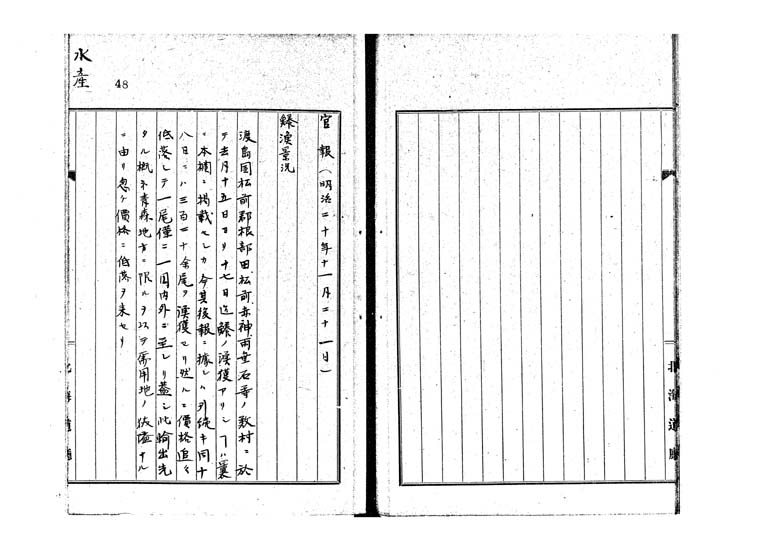 北海道廳
水産
48
官報（明治二十年十一月二十一日）
鰤漁景況
渡島国松前郡根部田松前赤神雨垂石等ノ数村ニ於
テ去月十五日ヨリ十七日迄鰤ノ漁獲アリシヿハ曩
ニ本欄ニ掲載セシカ今其後報ニ據レハ引続キ同十
八日ニハ三百二十余尾ヲ漁獲セリ然ルニ價格追々
低落シテ一尾僅ニ一円内外ニ至レリ蓋シ此輸出先
タル概ネ青森地方ニ限ルヲ以テ需用地ノ狭隘ナル
ニ由リ忽ケ價格ニ低落ヲ来セリ
北海道廳